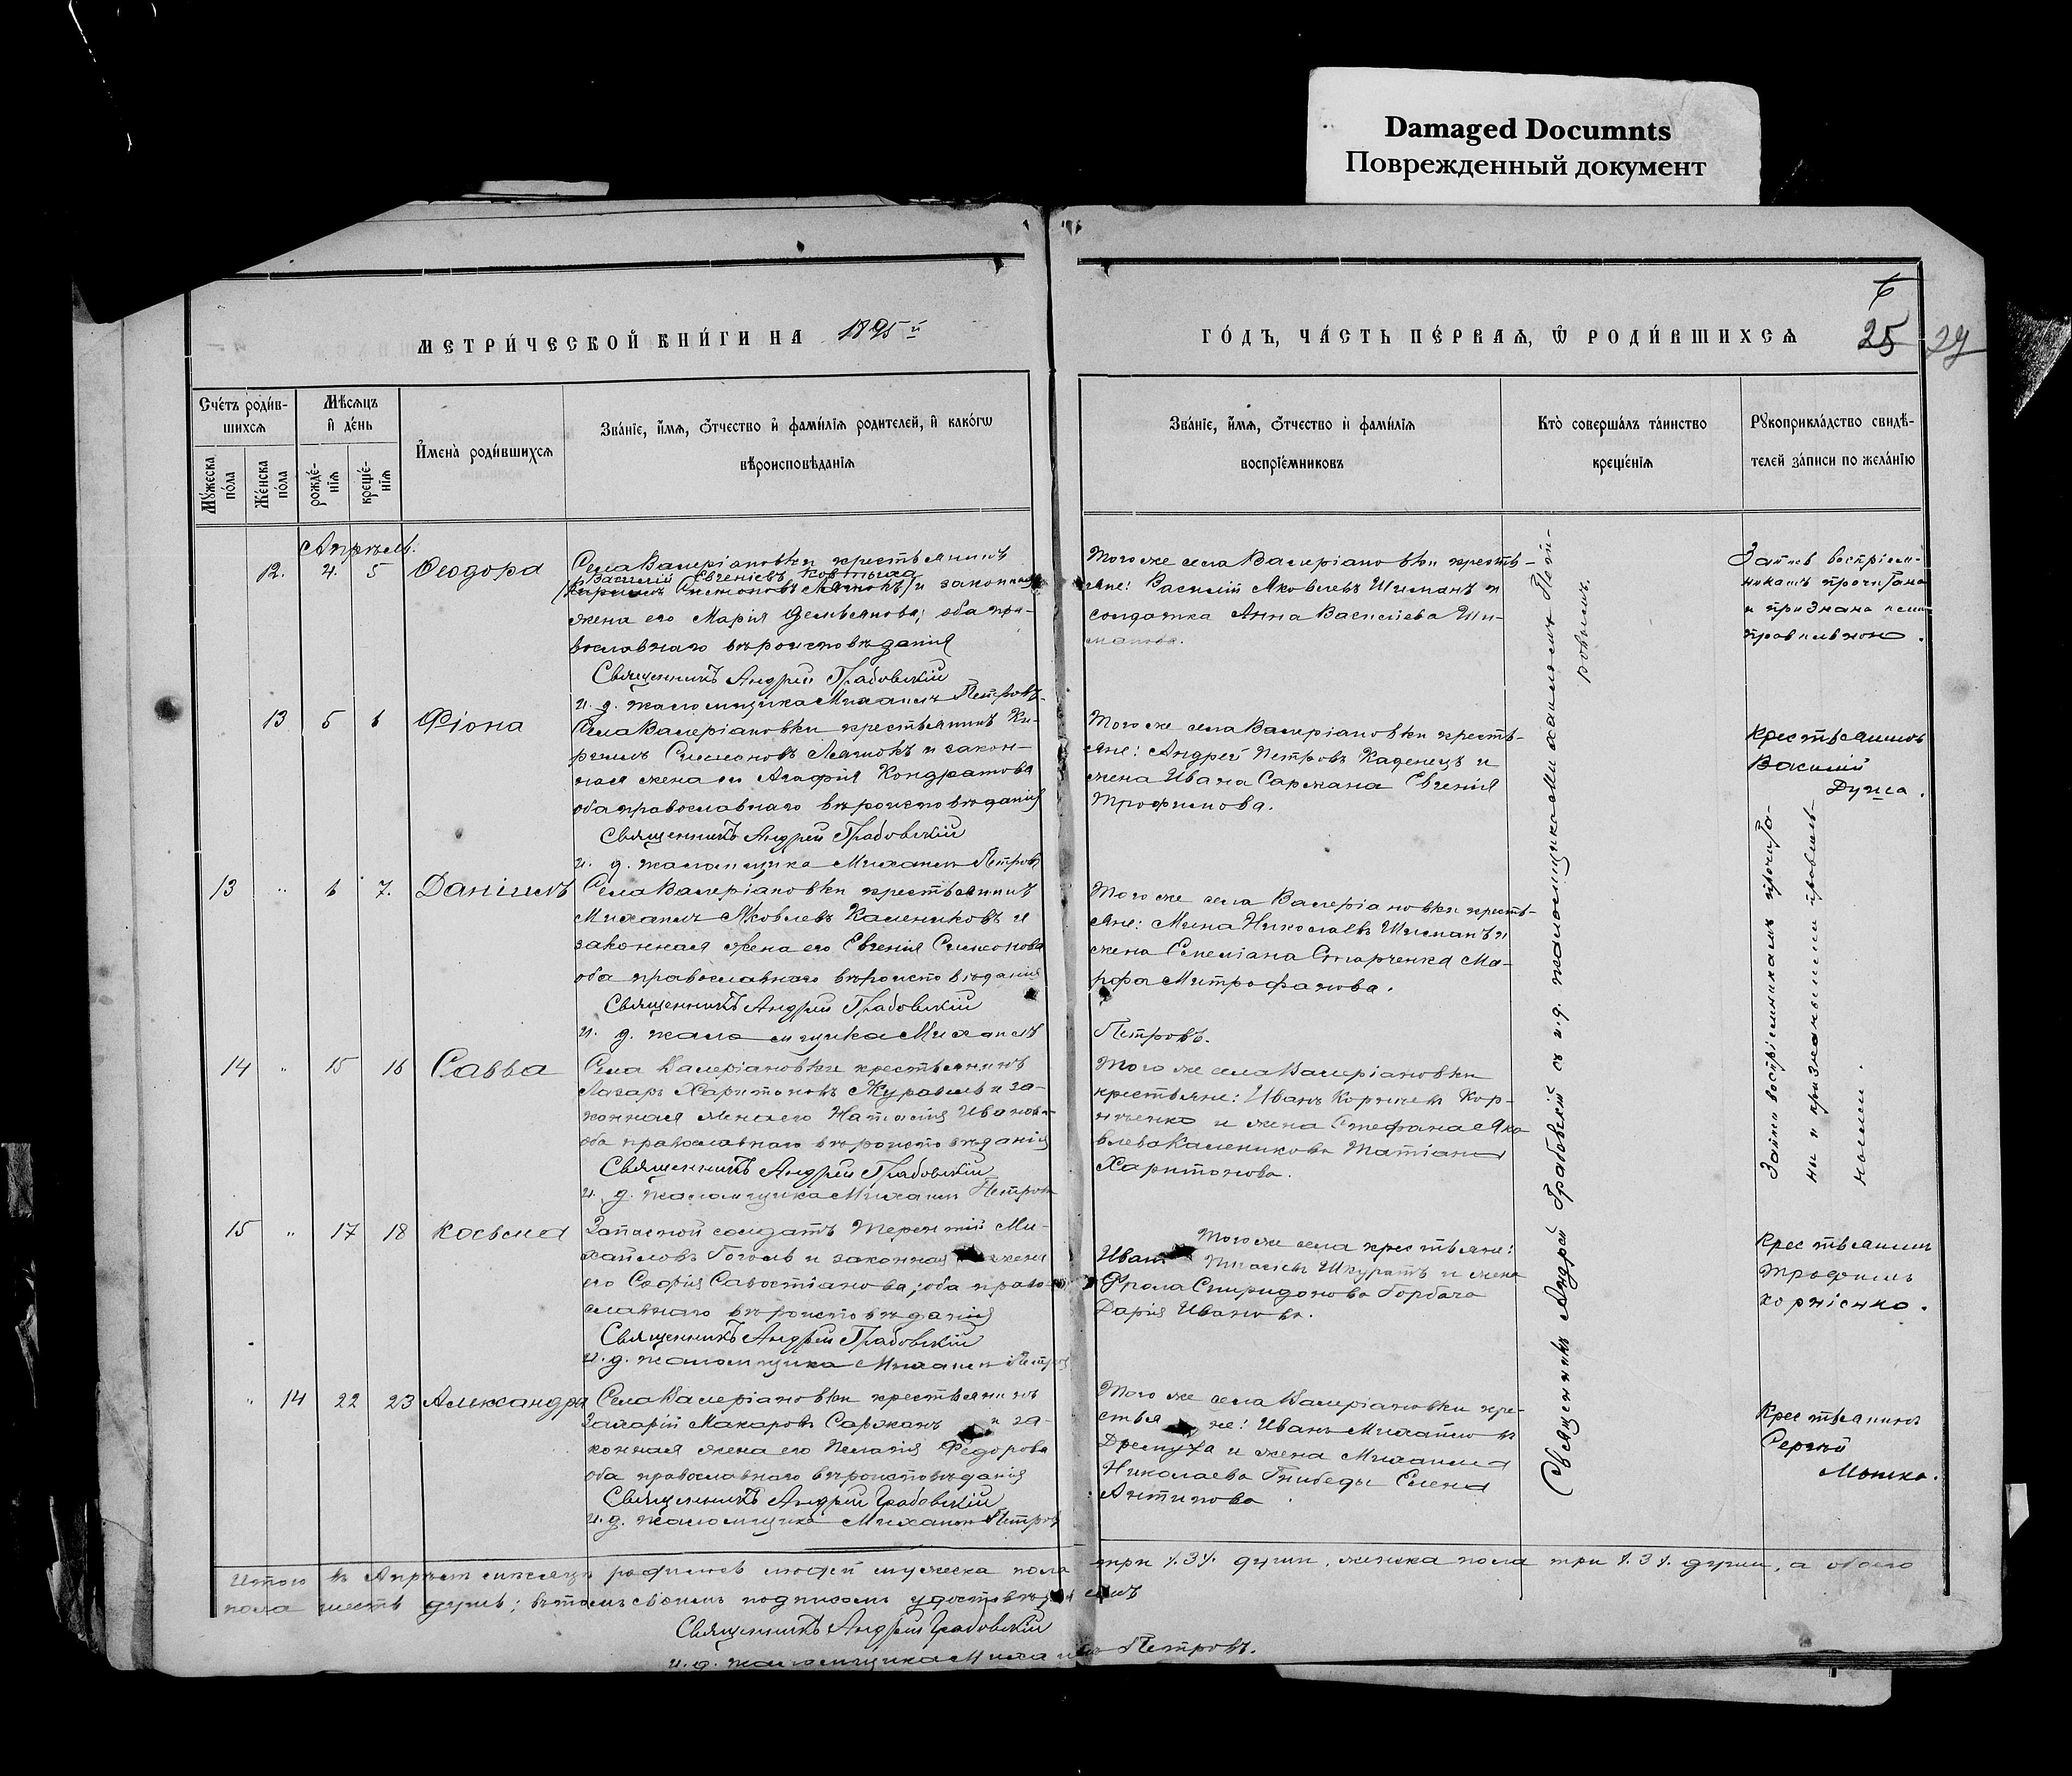 Damaged Documnts
Поврежденный документ
6
25 29
МЕТРИ́ЧЕСКОЙ КНИ́ГИ НА 1895 й
ГО́ДЪ, ЧА́СТЬ ПЕ́РВАѦ, Ѡ҆ РОДИ́ВШИХСѦ
Сче́тъ роди́в-
шихсѧ
Мѣ́сѧцъ
и҆ де́нь
Мꙋ́жеска по́ла
Же́нска по́ла
рожде́-
нїѧ
креще́-
нїѧ
И҆мена̀ роди́вшихсѧ
Зва́нїе, и҆́мѧ, ѻ҆́тчество и҆ фамѝлїѧ роди́телей, и҆ како́гѡ
вѣроисповѣ́данїѧ
Зва́нїе, и҆́мѧ, ѻ҆́тчество и҆ фамѝлїѧ
воспрїе́мниковъ
Кто̀ соверша́лъ та́инство
креще́нїѧ
Рꙋкоприкла́дство свидѣ́-
телей за́писи по жела́нїю
Апрѣль.
12. 4. 5 Ѳеодора
Села Валеріановки крестьянинъ
Василій Евгеніевъ Ковтыха
(Кириллъ Симоновъ Ляшокъ) и законная
жена его Марія Демьянова; оба пра-
вославнаго вѣроисповѣданія
Священникъ Андрей Грабовскій
и. д. псаломщика Михаилъ Петровъ
Того же села Валеріановки кресть-
яне: Василій Яковлевъ Шиманъ и
солдатка Анна Васильева Ши-
манова.
Запись воспріем-
никамъ прочитана
и признана ими
правильною.
13 5 6 Фіона
Села Валеріановки крестьянинъ Ки-
риллъ Симеоновъ Ляшокъ и закон-
ная жена его Агафія Кондратова
оба православнаго вѣроисповѣданія
Священникъ Андрей Грабовскій
и. д. псаломщика Михаилъ Петровъ
Того же села Валеріановки кресть-
яне: Андрей Петровъ Каденецъ и
жена Ивана Саржана Евгенія
Трофимова.
Крестьянинъ
Василій
13 " 6 7. Даніилъ
Села Валеріановки крестьянинъ
Михаилъ Яковлевъ Калениковъ и
законная жена его Евгенія Симеонова
оба православнаго вѣроисповѣданія
Священникъ Андрей Грабовскій
и. д. псаломщика Михаилъ
Петровъ.
Того же села Валеріановки кресть-
яне: Мина Николаевъ Шиманъ и
жена Емеліана Старченка Ма-
рфа Митрофанова.
14 " 15 16 Савва
Села Валеріановки крестьянинъ
Лазарь Харитоновъ Журавель и за-
конная жена его Наталія Иванова
оба православнаго вѣроисповѣданія
Священникъ Андрей Грабовскій
и. д. псаломщика Михаилъ Петровъ
Того же села Валеріановки
крестьяне: Иванъ Кор-
ніенко и жена Стефана Яко
влева Каленикова Татіана
Харитонова.
15 " 17 18 Косьма
Запасной солдатъ Терентій Ми-
хайловъ Гоголь и законная жена
его Софія Савостіанова; оба право-
славнаго вѣроисповѣданія
Священникъ Андрей Грабовскій
и. д. псаломщика Михаилъ Петровъ
Того же села крестьяне:
Иванъ Шкуратъ и жена
Фрола Спиридонова Горбача
Дарія Иванова.
Крестьянинъ
Трофимъ
Корніенко.
" 14 22 23 Александра
Села Валеріановки крестьянинъ
Захарій Макаровъ Саржанъ и за-
конная жена его Пелагія Федорова
оба православнаго вѣроисповѣданія
Священникъ Андрей Грабовскій
и. д. псаломщика Михаилъ Петровъ
Того же села Валеріановки кре-
стьяне: Иванъ Михайловъ
Дремуха и жена Михаила
Николаева Гнибеды Елена
Антипова
Крестьянинъ
Сергѣй
Священникъ Андрей Грабовскій съ и. д. псаломщика Михаиломъ Пет-
ровымъ.
Записи воспріемникамъ прочита-
ны и признаны ими правиль-
ными.
Итого въ Апрѣлѣ мѣсяцѣ родилось людей мужеска пола три /.3/. души, женска пола три /.3/. души, а обоего
пола шесть душъ; въ томъ своимъ подписомъ удостовѣряемъ
Священникъ Андрей Грабовскій
и. д. псаломщика Михаилъ Петровъ.